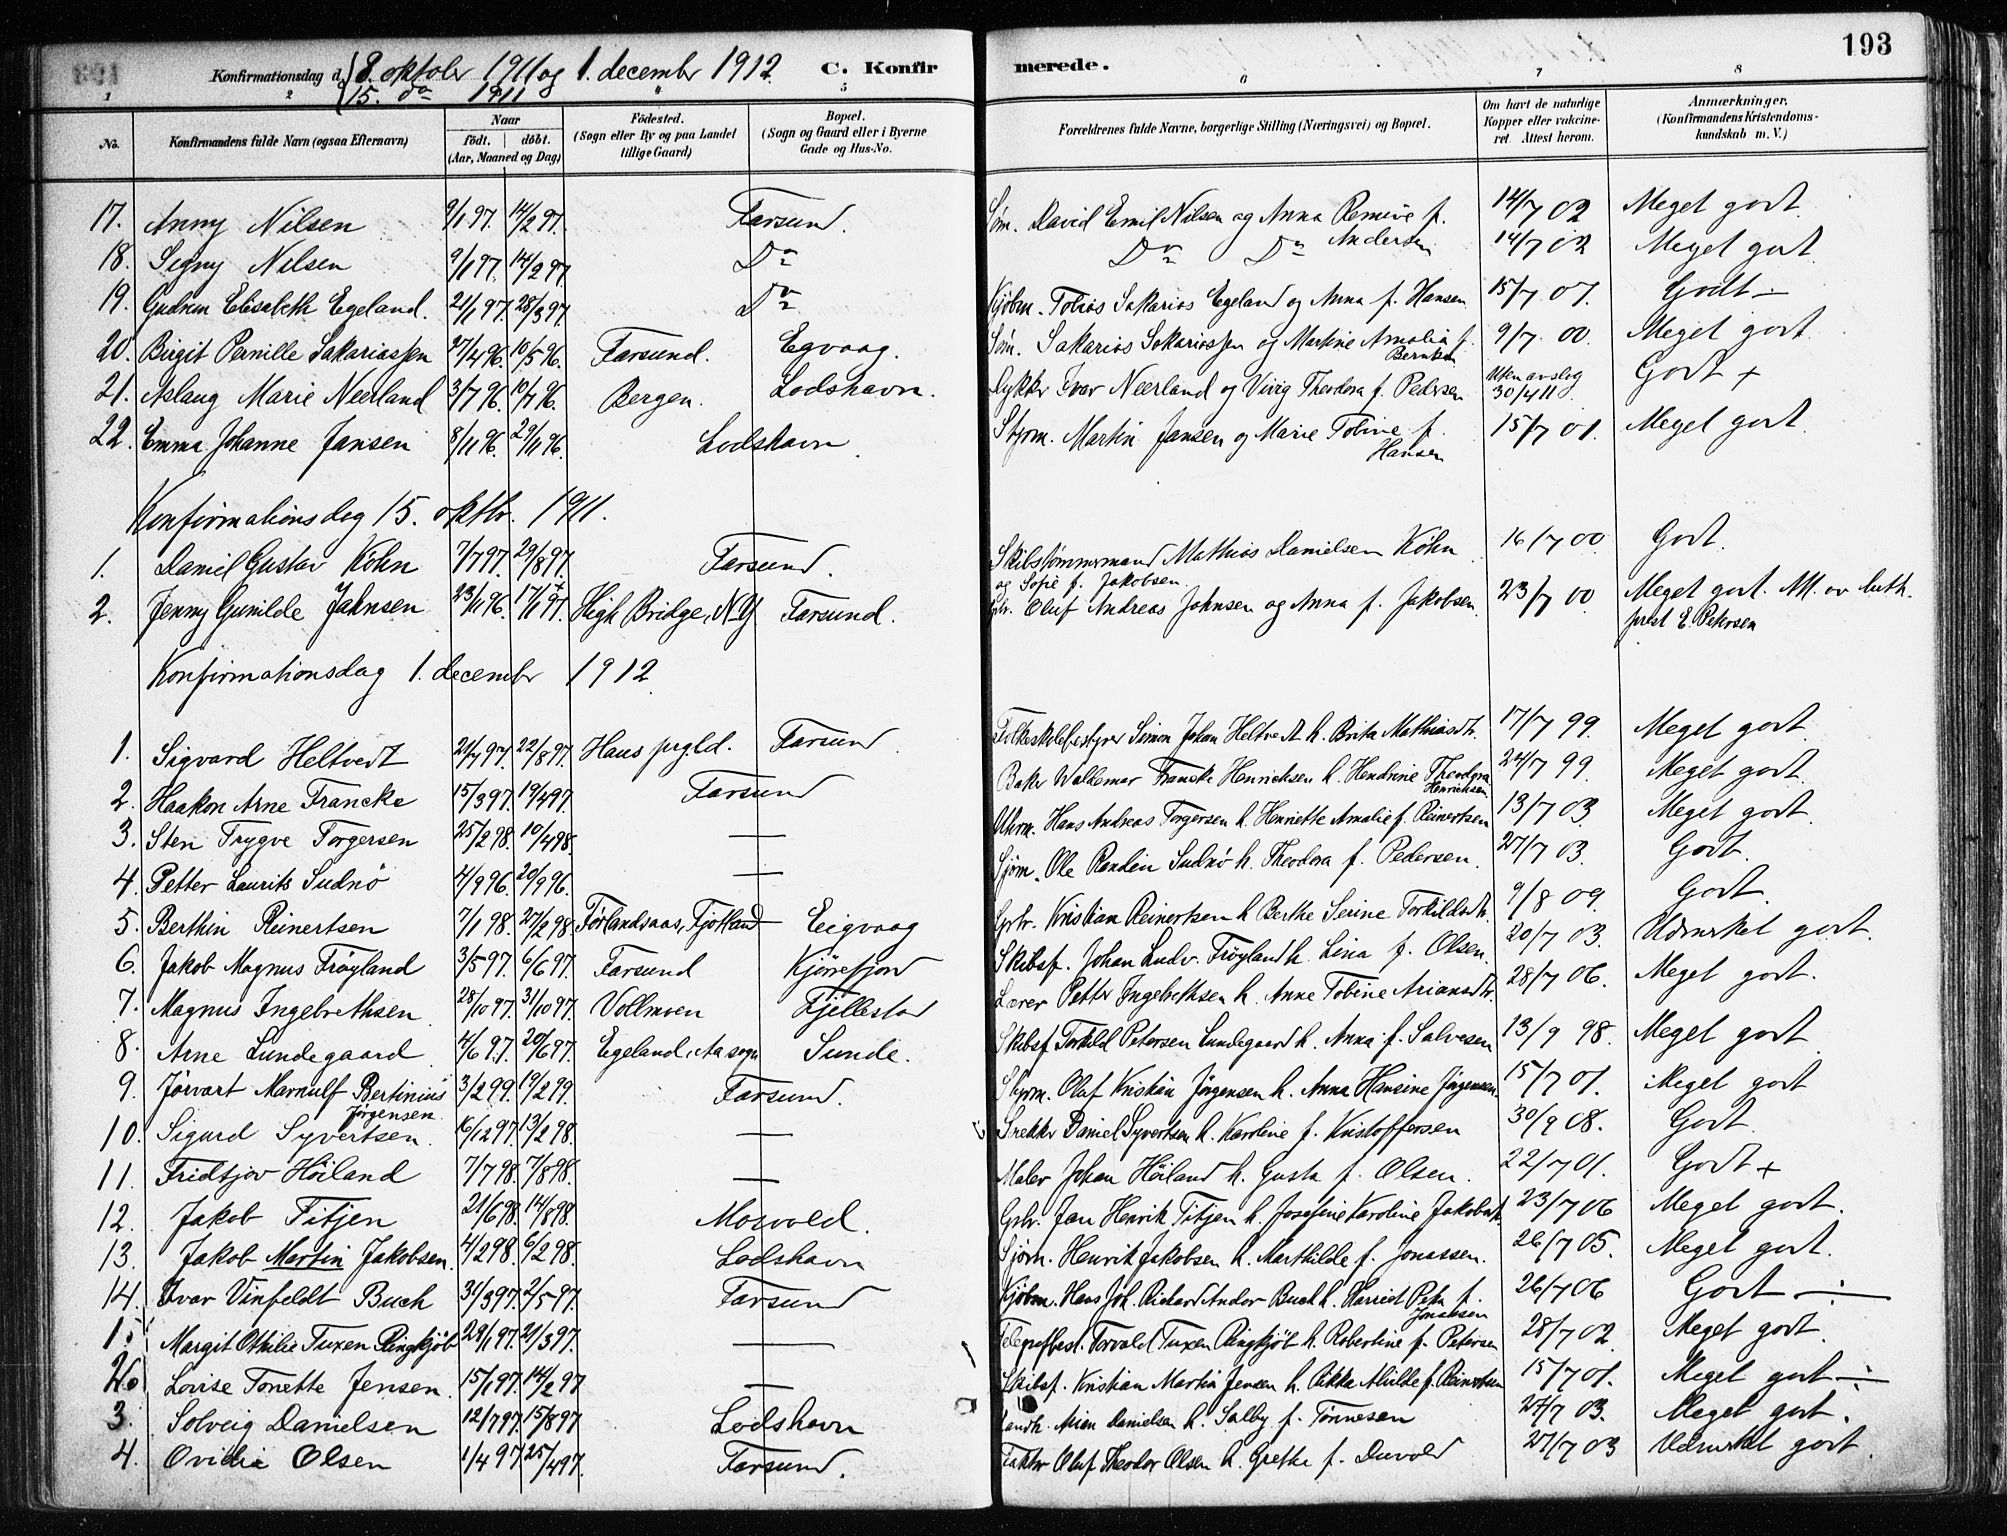 193
Konfirmationsdag d. 8. oktober 1911 og 1. december 1912. C. Konfirmerede.
15. do 1911
1 2 4 5 6 7 8
No. Konfirmandens fulde Navn (ogsaa Efternavn) Naar født. døbt. (Aar, Maaned og Dag) Fødested. (Sogn eller By og paa Landet tillige Gaard) Bopæl. (Sogn og Gaard eller i Byerne Gade og Hus-No. Forældrenes fulde Navne, borgerlige Stilling (Næringsvei) og Bopæl. Om havt de naturlige Kopper eller vaccineret. Attest herom. Anmærkninger. (Konfirmandens Kristendomskundskab m. V.)
17. Anny Nilsen 9/1 97. 14/2 97. Farsund. Søm. David Emil Nilsen og Anna Remine f. Andersen 14/7 02 Meget godt.
18. Signy Nilsen 9/1 97. 14/2 97. Do Do Do 14/7 02 Meget godt.
19. Gudrun Elisabeth Egeland. 21/1 97. 28/3 97. Do Kjøbm. Tobias Sakarias Egeland og Anna f. Hansen 15/7 07. Godt –
20. Birgit Pernille Sakariassen 27/4 96. 10/5 96. Farsund. Egvaag. Søm. Sakarias Sakariassen og Martine Amalia f. Berntsen 9/7 00. Meget godt.
21. Aslaug Marie Neerland 3/7 96. 10/7 96. Bergen. Lodshavn. Dykker Ivar Neerland og Virig Theodora f. Pedersen Uten avslag 30/4 11. Godt +
22. Emma Johanne Jansen 8/11 96. 29/11 96. Lodshavn Styrm. Martin Jansen og Marie Tobine f. Hansen 15/7 01. Meget godt.
Konfirmationsdag 15. oktbr. 1911.
1. Daniel Gustav Köhn 7/7 97. 29/8 97. Farsund. Skibstømmermand Mathias Danielsen Köhn og Sofie f. Jakobsen 16/7 00 Godt.
2. Jenny Gunilde Jahnsen 23/11 96. 17/1 97. High Bridge, N.Y Farsund. Oluf Andreas Johnsen og Anna f. Jakobsen 23/7 00 Meget godt. Att. av luth. prest E. Petersen
Konfirmationsdag 1. december 1912
1. Sigvard Heltvedt 21/7 97. 22/8 97. Haus prgld. Farsund Folkeskolebestyrer Simon Johan Heltvedt h. Brita Mathiasdtr. 17/7 99. Meget godt.
2. Haakon Arne Francke 15/3 97. 19/4 97. Farsund Baker Waldemar Francke Henrichsen h. Hendrine Theodora Henrichsen 24/7 99. Meget godt.
3. Sten Trygve Torgersen 25/2 98. 10/4 98. — Uhrm. Hans Andreas Torgersen h. Henriette Amalie f. Reinertsen 13/7 03. Meget godt.
4. Petter Laurits Sudnö 4/9 96. 20/9 96. — Sjøm. Ole Randin Sudnö h. Theodora f. Pedersen. 27/7 03. Godt.
5. Berthin Reinertsen 7/1 98. 27/2 98. Førlandsaas, Fjotland Eigvaag Grbr. Kristian Reinertsen h. Berthe Serine Torkildsdtr. 9/8 09. Godt.
6. Jakob Magnus Frøyland 3/5 97. 6/6 97. Farsund Kjørrefjord Skibsf. Johan Ludv. Frøyland h. Lina f. Olsen. 20/7 03. Udmerket godt.
7. Magnus Ingebrethsen 28/10 97. 31/10 97. Vollmoen Fjellestad Lærer Petter Ingebrethsen h. Anne Tobine Ariansdtr. 28/7 06. Meget godt.
8. Arne Lundegaard 4/6 97. 20/6 97. Egeland, Aa sogn Sunde. Skibsf. Torkild Petersen Lundegaard h. Anna f. Salvesen 13/9 98. Meget godt
9. Jørvart Marnulf Bertinius Jørgensen 3/2 99. 19/2 99. Farsund. Styrm. Olaf Kristian Jörgensen h. Anna Hansine Jörgensen. 15/7 01. Meget godt
10. Sigurd Syvertsen. 16/12 97. 13/2 98. — Daniel Syvertsen h. Karoline f. Kristoffersen 30/9 08. Godt.
11. Fridtjov Höiland 7/7 98. 7/8 98. — Maler Johan Höiland h. Gusta f. Olsen. 22/7 01. Godt +
12. Jakob Titjen 21/6 98. 14/8 98. Mosvold. Grbr. Jan Henrik Titjen h. Josefine Karoline Jakobsdtr. 23/7 06 Meget godt.
13. Jakob Martin Jakobsen. 4/2 98. 6/2 98. Lodshavn Sjöm. Henrik Jakobsen h. Marthilde f. Jonassen. 26/7 05. Meget godt.
14. Ivar Vinfeldt Buch 31/3 97. 2/5 97. Farsund Kjöbm. Hans Joh. Richard Andor Buch h. Harriet Petra f. Jonassen 26/7 06 Godt —
1. Margit Othilie Tuxen Ringkjöb 29/1 97. 21/3 97. — Telegrafbest. Torvald Tuxen Ringkjöb h. Robertine f. Petersen 28/7 02. Meget godt.
2. Lovise Tonette Jensen. 15/1 97. 14/2 97 — Skibsf. Kristian Martin Jensen h. Rikka Alvilde f. Reinertsen 15/7 01. Meget godt —
3. Solveig Danielsen 12/7 97. 15/8 97 Lodshavn Danielsen h. Salby f. Tönnesen 27/7 03. Meget godt.
4. Ovidia Olsen 1/4 97. 25/4 97. Farsund. Faktor Oluf Theodor Olsen h. Grethe f. Duvold 27/7 03 Udmerket godt